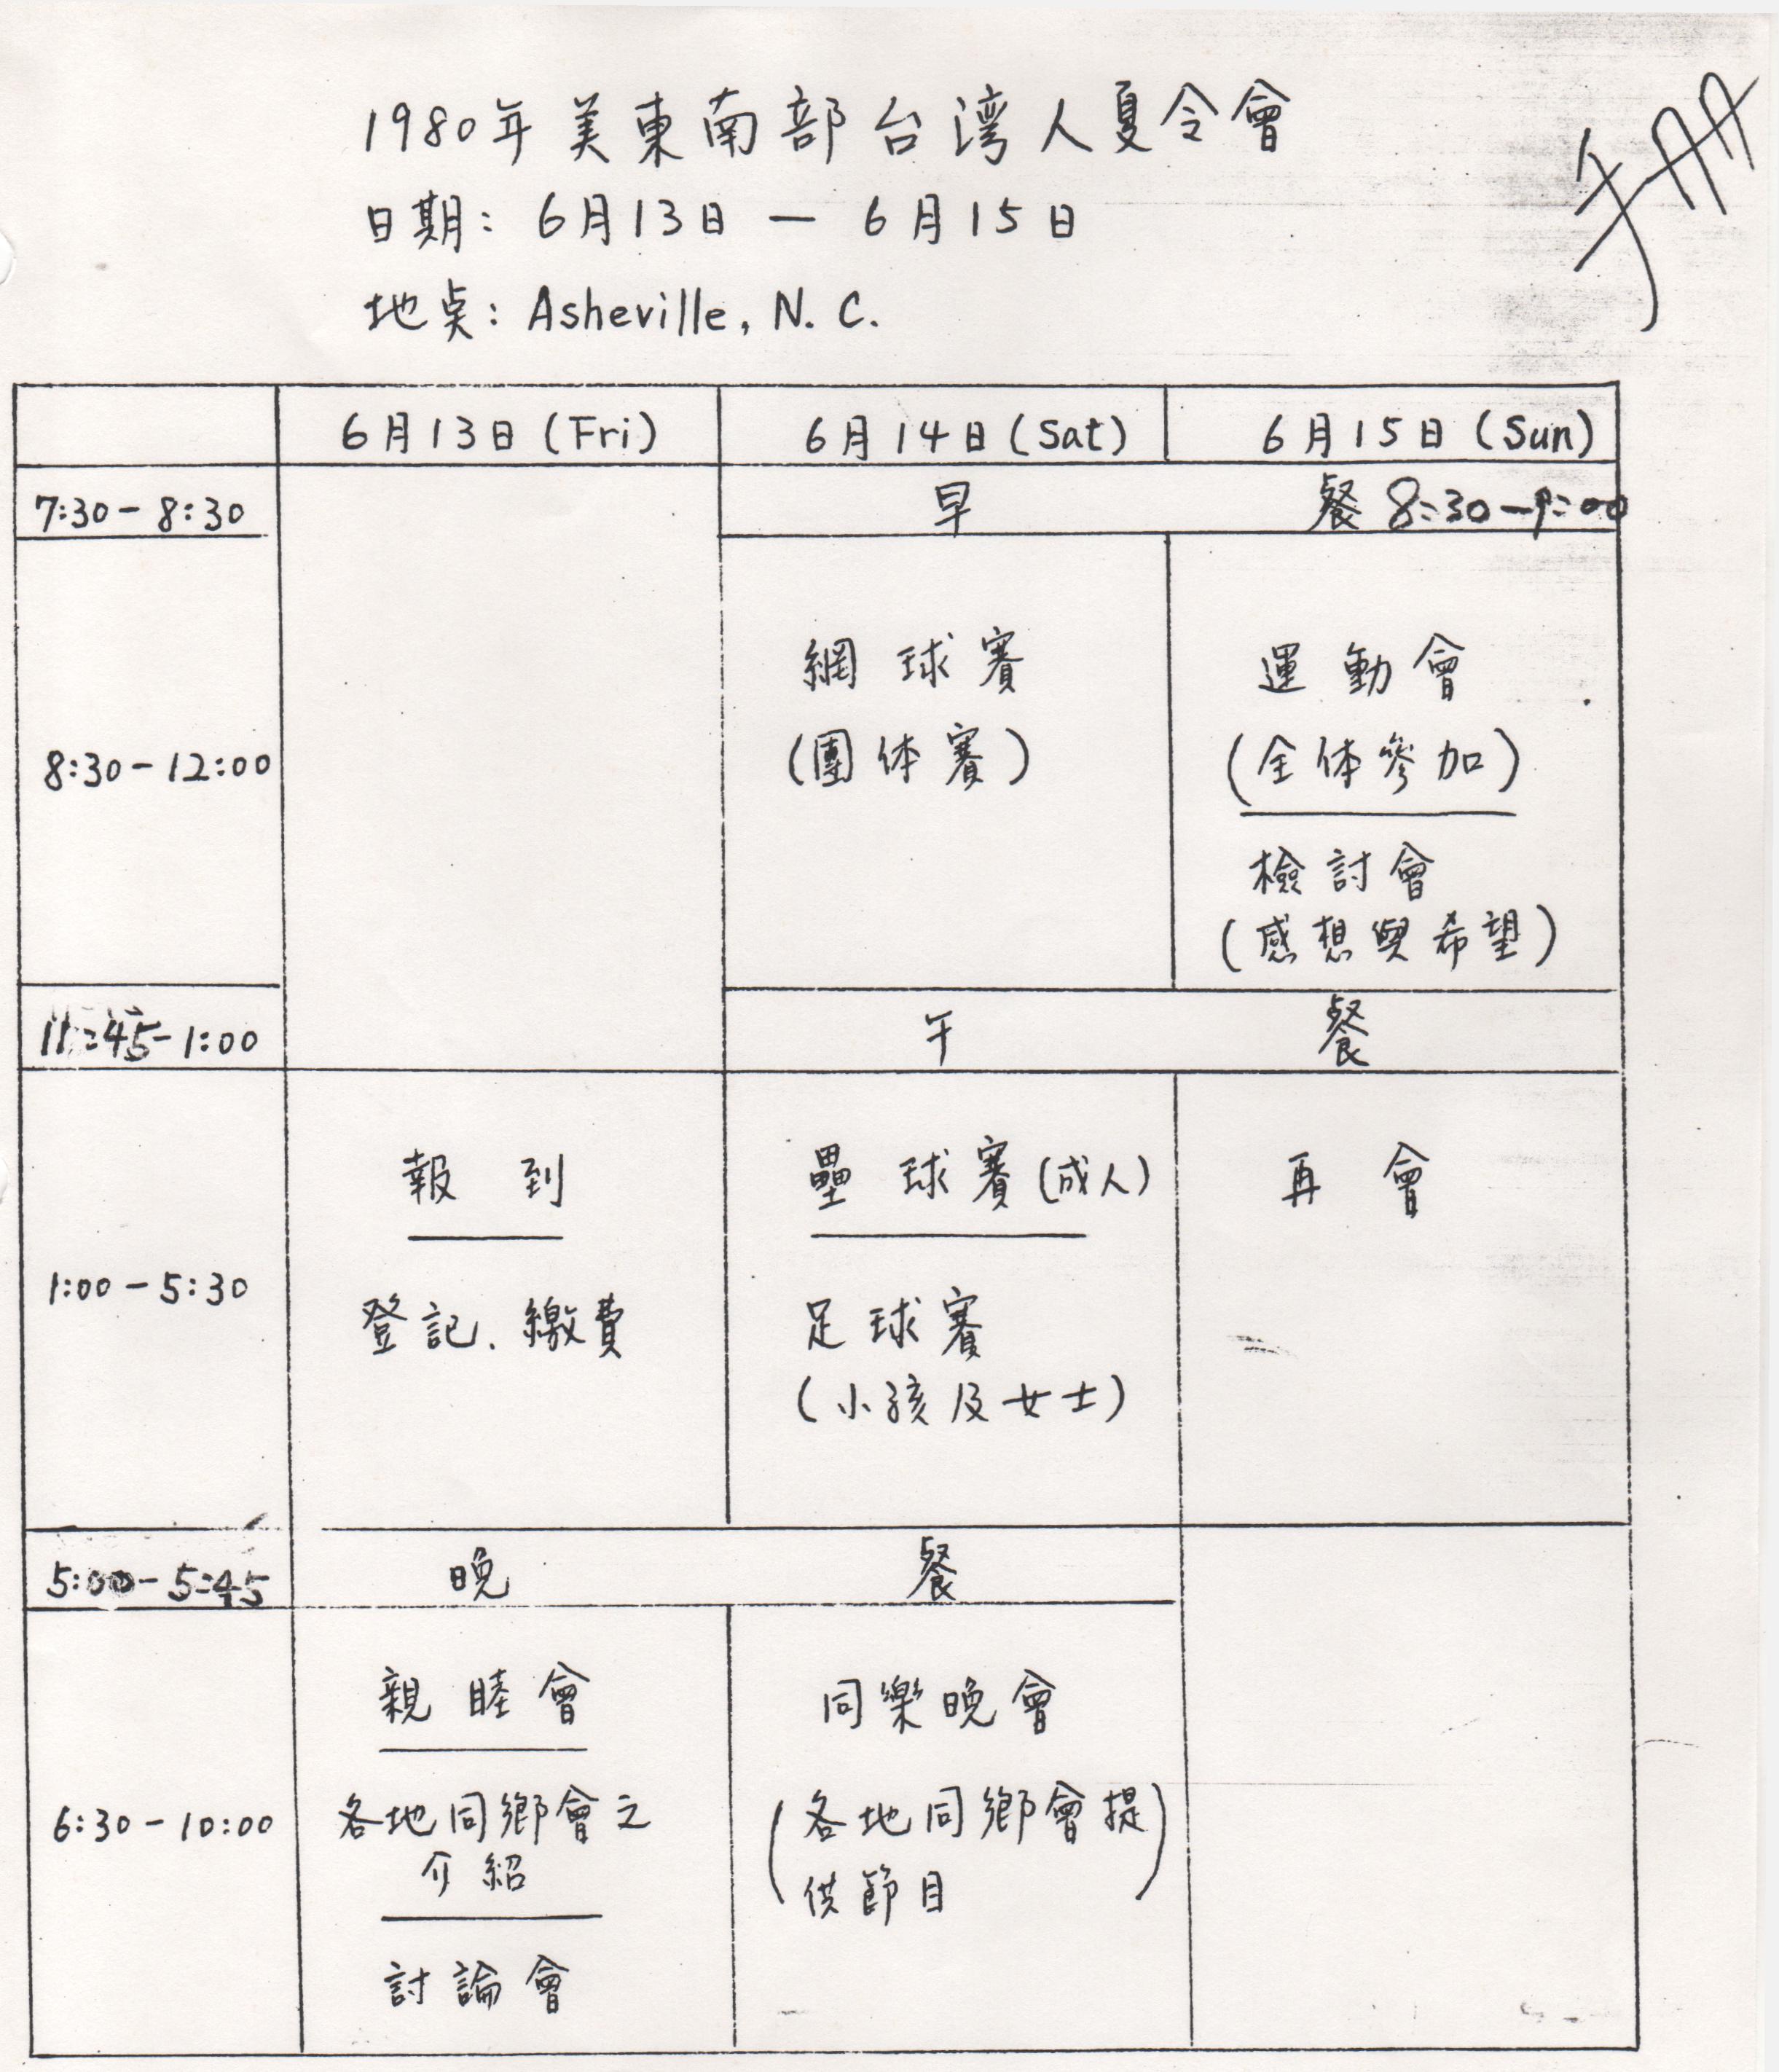 1980年美東南部台湾人夏令會
日期: 6月13日 — 6月15日
地点: Asheville, N. C.
6月13日 (Fri) 6月14日 (Sat) 6月15日 (Sun)
7:30 - 8:30 早 餐 8:30 - 9:00
8:30 - 12:00
網球賽
(團体賽)
運動會
(全体參加)
檢討會
(感想與希望)
11:45 - 1:00 午 餐
1:00 - 5:30
報到
登記、繳費
壘球賽(成人)
足球賽
(小孩及女士)
再會
5:00 - 5:45 晚 餐
6:30 - 10:00
親睦會
各地同鄉會之
介紹
討論會
同樂晚會
(各地同鄉會提
供節目)